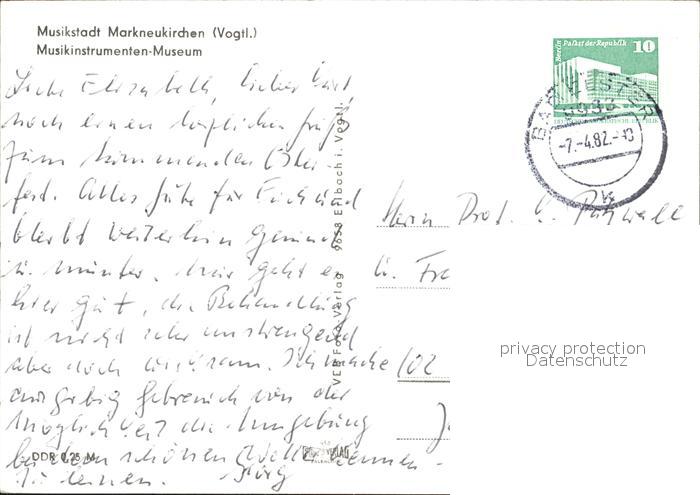 Musikstadt Markneukirchen (Vogtl.)
Musikinstrumenten-Museum
Liebe Elisabeth, lieber
noch einen
zum kommenden Oster-
fest. Alles Gute für Euch und
bleibt weiterhin gesund
u. munter. Mir geht es
hier gut, die Behandlung
ist nicht sehr anstrengend
aber doch. Ich mache
ausgiebig Gebrauch von der
Möglichkeit die Umgebung
bei dem schönen Wetter kennen-
zu lernen.
DDR 0,25 M
VEB Foto-Verlag 9658 Erlbach i. Vogtl.
Berlin Palast der Republik 10
BAD ELSTER
9933
-7.-4.82.
Herrn Prof.
u. Fr
102
J
privacy protection
Datenschutz